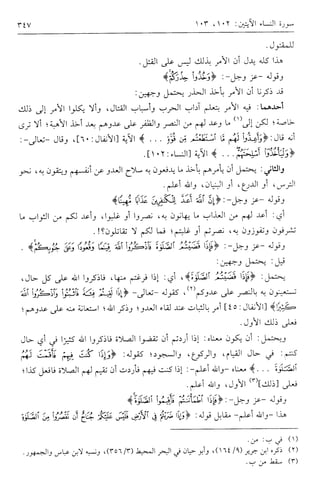 سورة النساء الآيتين: ١٠٢، ١٠٣
٣٤٧
للمقتول.
هذا كله يدل أن الأمر بذلك ليس على القتل.
وقوله -عز وجل-: ﴿وَخُذُوا حِذْرَكُمْ﴾
قد ذكرنا أن الأمر بأخذ الحذر يحتمل وجهين:
أحدهما: فيه الأمر بتعلم آداب الحرب وأسباب القتال، وألا يكلوا الأمر إلى ذلك
خاصة؛ لكن إلى(١) ما وعد لهم من النصر والظفر على عدوهم بعد أخذ الأهبة؛ ألا ترى
أنه قال: ﴿وَأَعِدُّوا لَهُم مَّا اسْتَطَعْتُم مِّن قُوَّةٍ . . .﴾ الآية [الأنفال: ٦٠]، وقال -تعالى-:
﴿وَلْيَأْخُذُوا أَسْلِحَتَهُمْ . . .﴾ الآية [النساء: ١٠٢].
والثاني: يحتمل أن يأمرهم بأخذ ما يدفعون به سلاح العدو عن أنفسهم ويتقون به، نحو
الترس، أو الدرع، أو البنيان، والله أعلم.
وقوله -عز وجل-: ﴿إِنَّ اللَّهَ أَعَدَّ لِلْكَافِرِينَ عَذَابًا مُّهِينًا﴾
أي: أعد لهم من العذاب ما يهانون به، نصروا أو غلبوا، وأعد لكم من الثواب ما
تشرفون وتفوزون به، نصرتم أو غلبتم؛ فما لكم لا تقاتلون؟!.
وقوله -عز وجل-: ﴿فَإِذَا قَضَيْتُمُ الصَّلَاةَ فَاذْكُرُوا اللَّهَ قِيَامًا وَقُعُودًا وَعَلَىٰ جُنُوبِكُمْ﴾ .
قيل: يحتمل وجهين:
يحتمل: ﴿فَإِذَا قَضَيْتُمُ الصَّلَاةَ﴾، أي: إذا فرغتم منها، فاذكروا الله على كل حال،
تستعينون به بالنصر على عدوكم(٢)، كقوله -تعالى- ﴿إِذَا لَقِيتُمْ فِئَةً فَاثْبُتُوا وَاذْكُرُوا اللَّهَ
كَثِيرًا﴾ [الأنفال: ٤٥] أمر بالثبات عند لقاء العدو؛ وذكر الله؛ استعانة منه على عدوهم؛
فعلى ذلك الأول.
ويحتمل: أن يكون معناه: إذا أردتم أن تقضوا الصلاة فاذكروا الله كثيرًا في أي حال
كنتم: في حال القيام، والركوع، والسجود؛ كقوله: ﴿وَإِذَا كُنتَ فِيهِمْ فَأَقَمْتَ لَهُمُ
الصَّلَاةَ . . .﴾ معناه -والله أعلم-: إذا كنت فيهم فأردت أن تقيم لهم الصلاة فافعل كذا؛
فعلى [ذلك](٣) الأول، والله أعلم.
وقوله -عز وجل-: ﴿فَإِذَا اطْمَأْنَنتُمْ فَأَقِيمُوا الصَّلَاةَ﴾
هذا -والله أعلم- مقابل قوله: ﴿وَإِذَا ضَرَبْتُمْ فِي الْأَرْضِ فَلَيْسَ عَلَيْكُمْ جُنَاحٌ أَن تَقْصُرُوا مِنَ الصَّلَاةِ
(١) في ب: من.
(٢) ذكره ابن جرير (٩/ ١٦٤)، وأبو حيان في البحر المحيط (٣/ ٣٥٦)، ونسبه لابن عباس والجمهور.
(٣) سقط من ب.